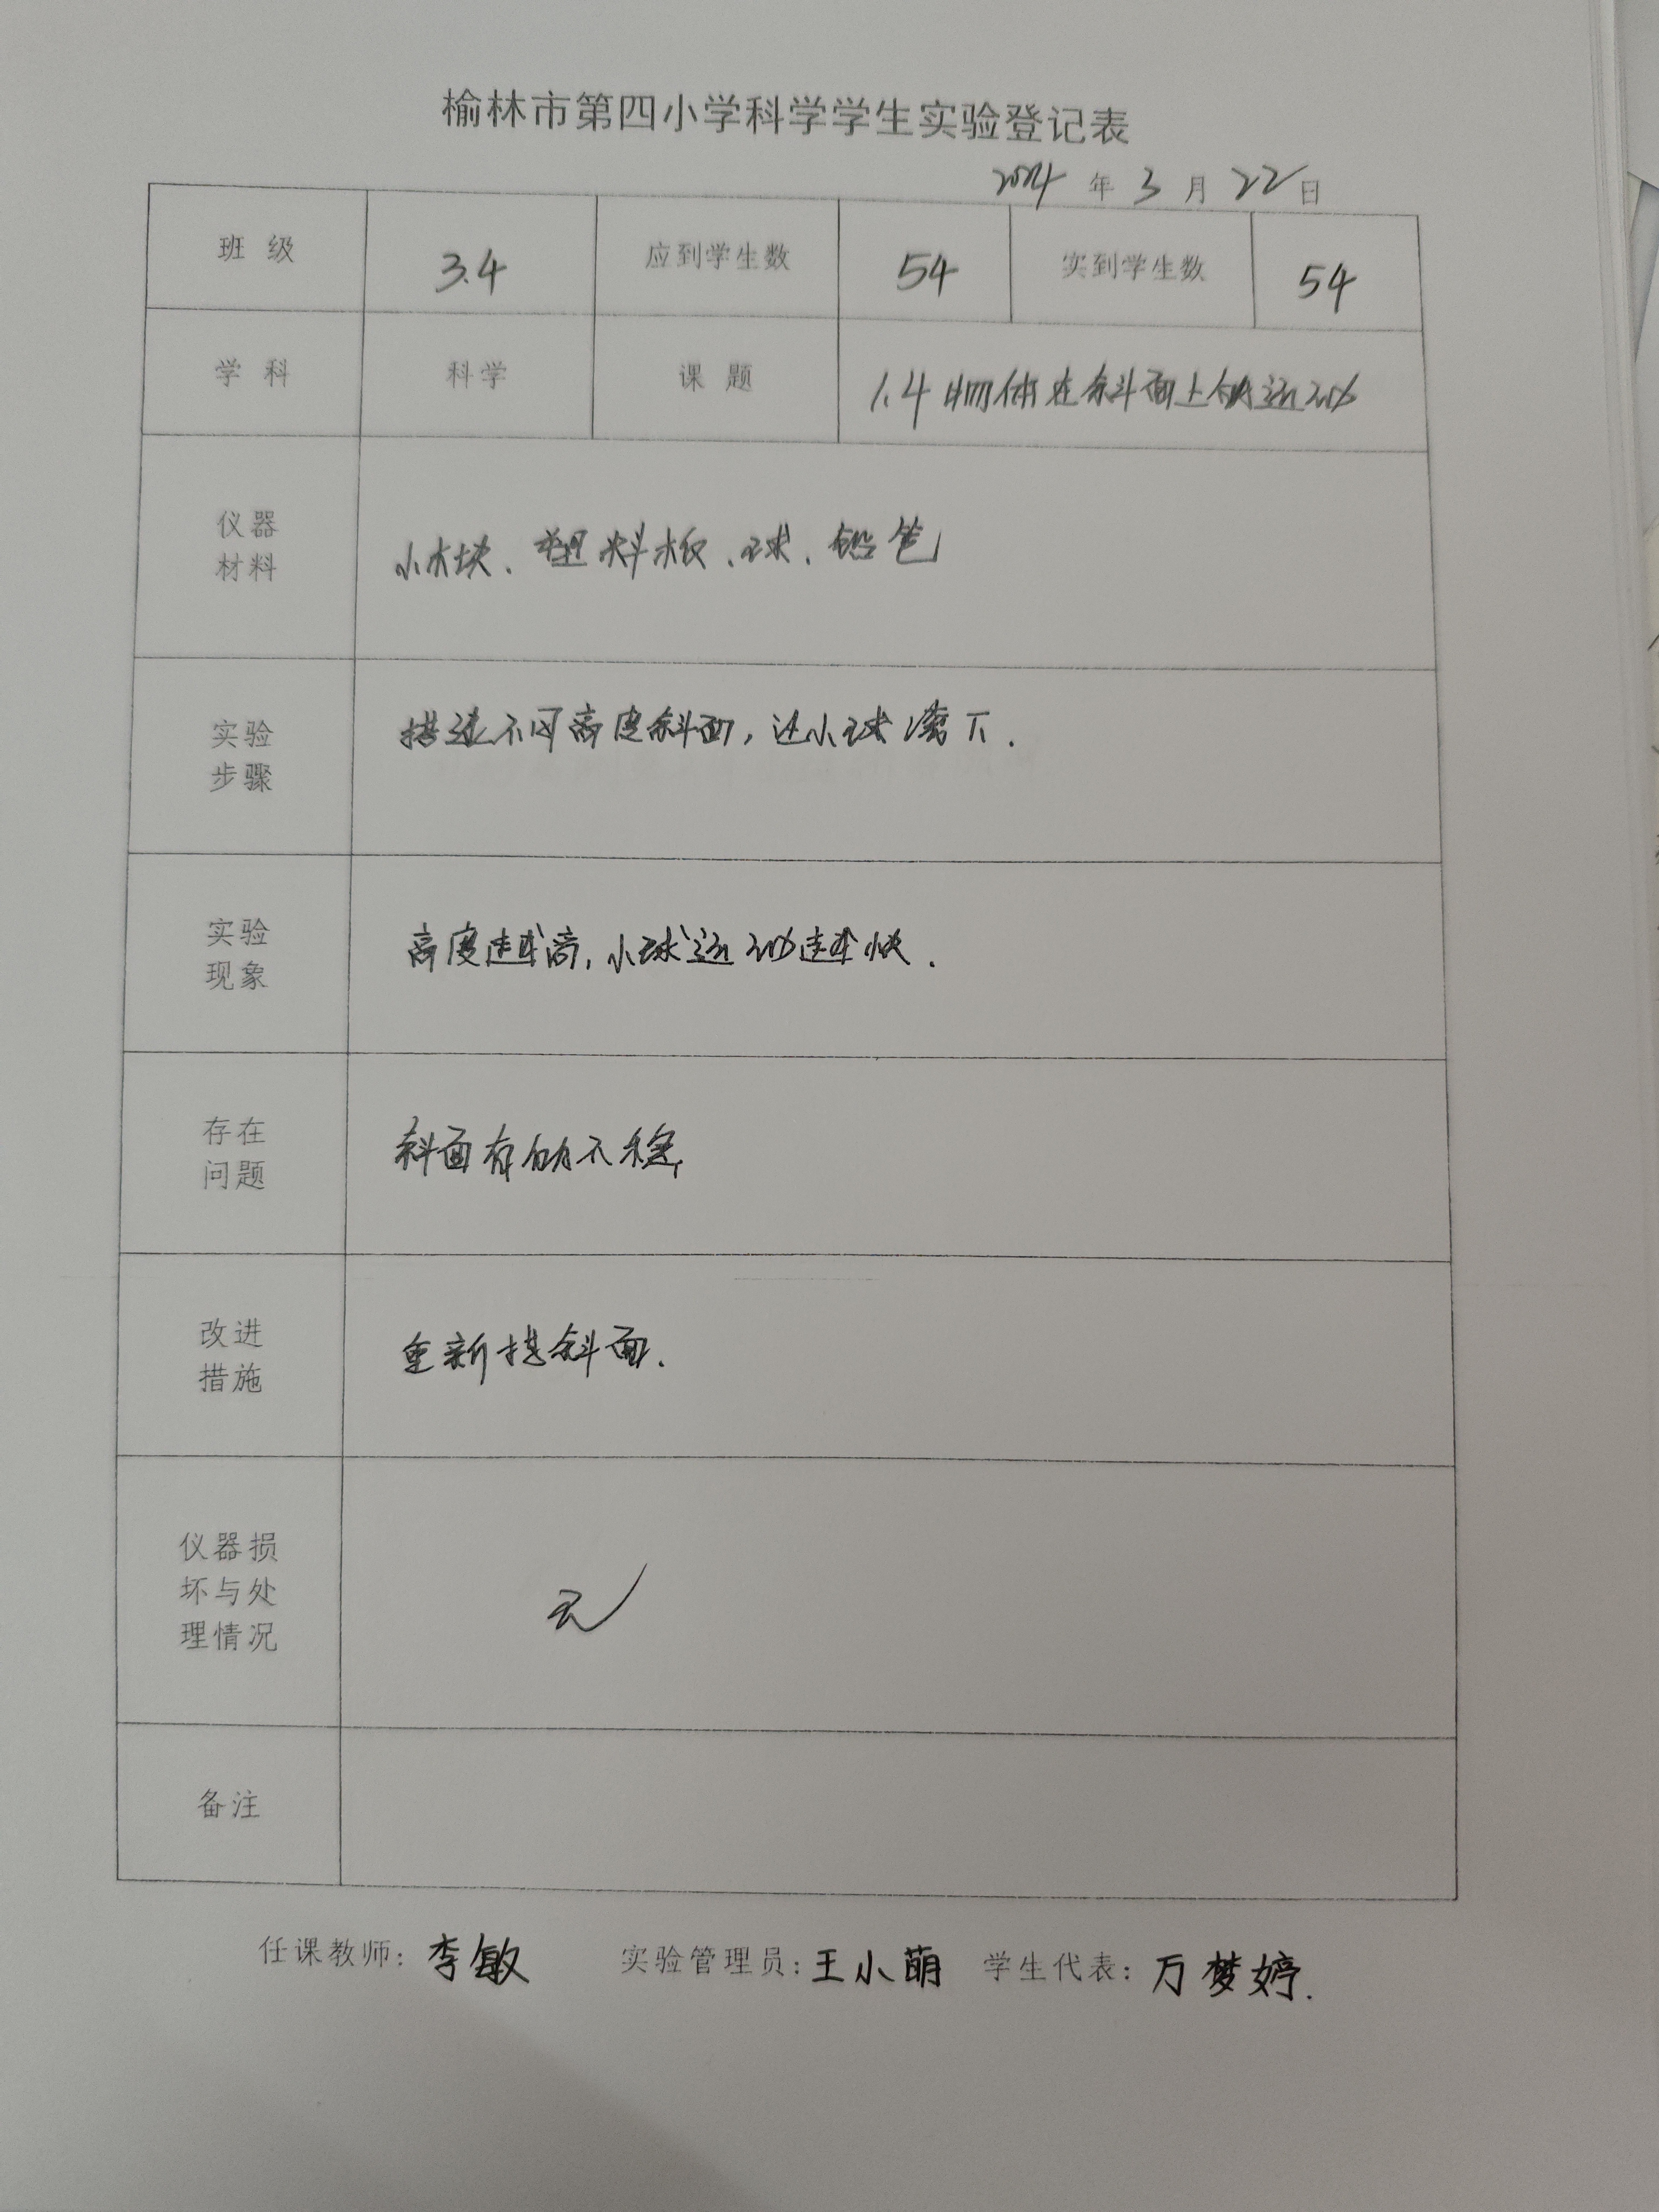 榆林市第四小学科学学生实验登记表
2024 年 3 月 22 日
班 级 3.4 应到学生数 54 实到学生数 54
学 科 科学 课 题 1.4 物体在斜面上的运动
仪器
材料
小木块、塑料板、球、铅笔
实验
步骤
搭建不同高度斜面，让小球滚下.
实验
现象
高度越高,小球运动越快.
存在
问题
斜面有的不稳.
改进
措施
重新搭斜面.
仪器损
坏与处
理情况
无
备注
任课教师: 李敏 实验管理员: 王小萌 学生代表: 万梦婷.